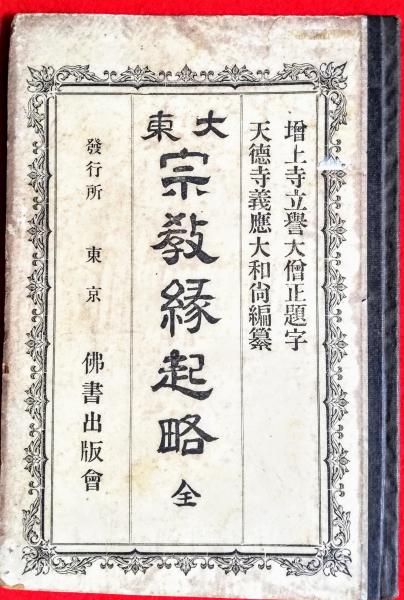 增上寺立譽大僧正題字
天德寺義應大和尙編纂
大東
宗敎緣起略 全
發行所 東京 佛書出版會